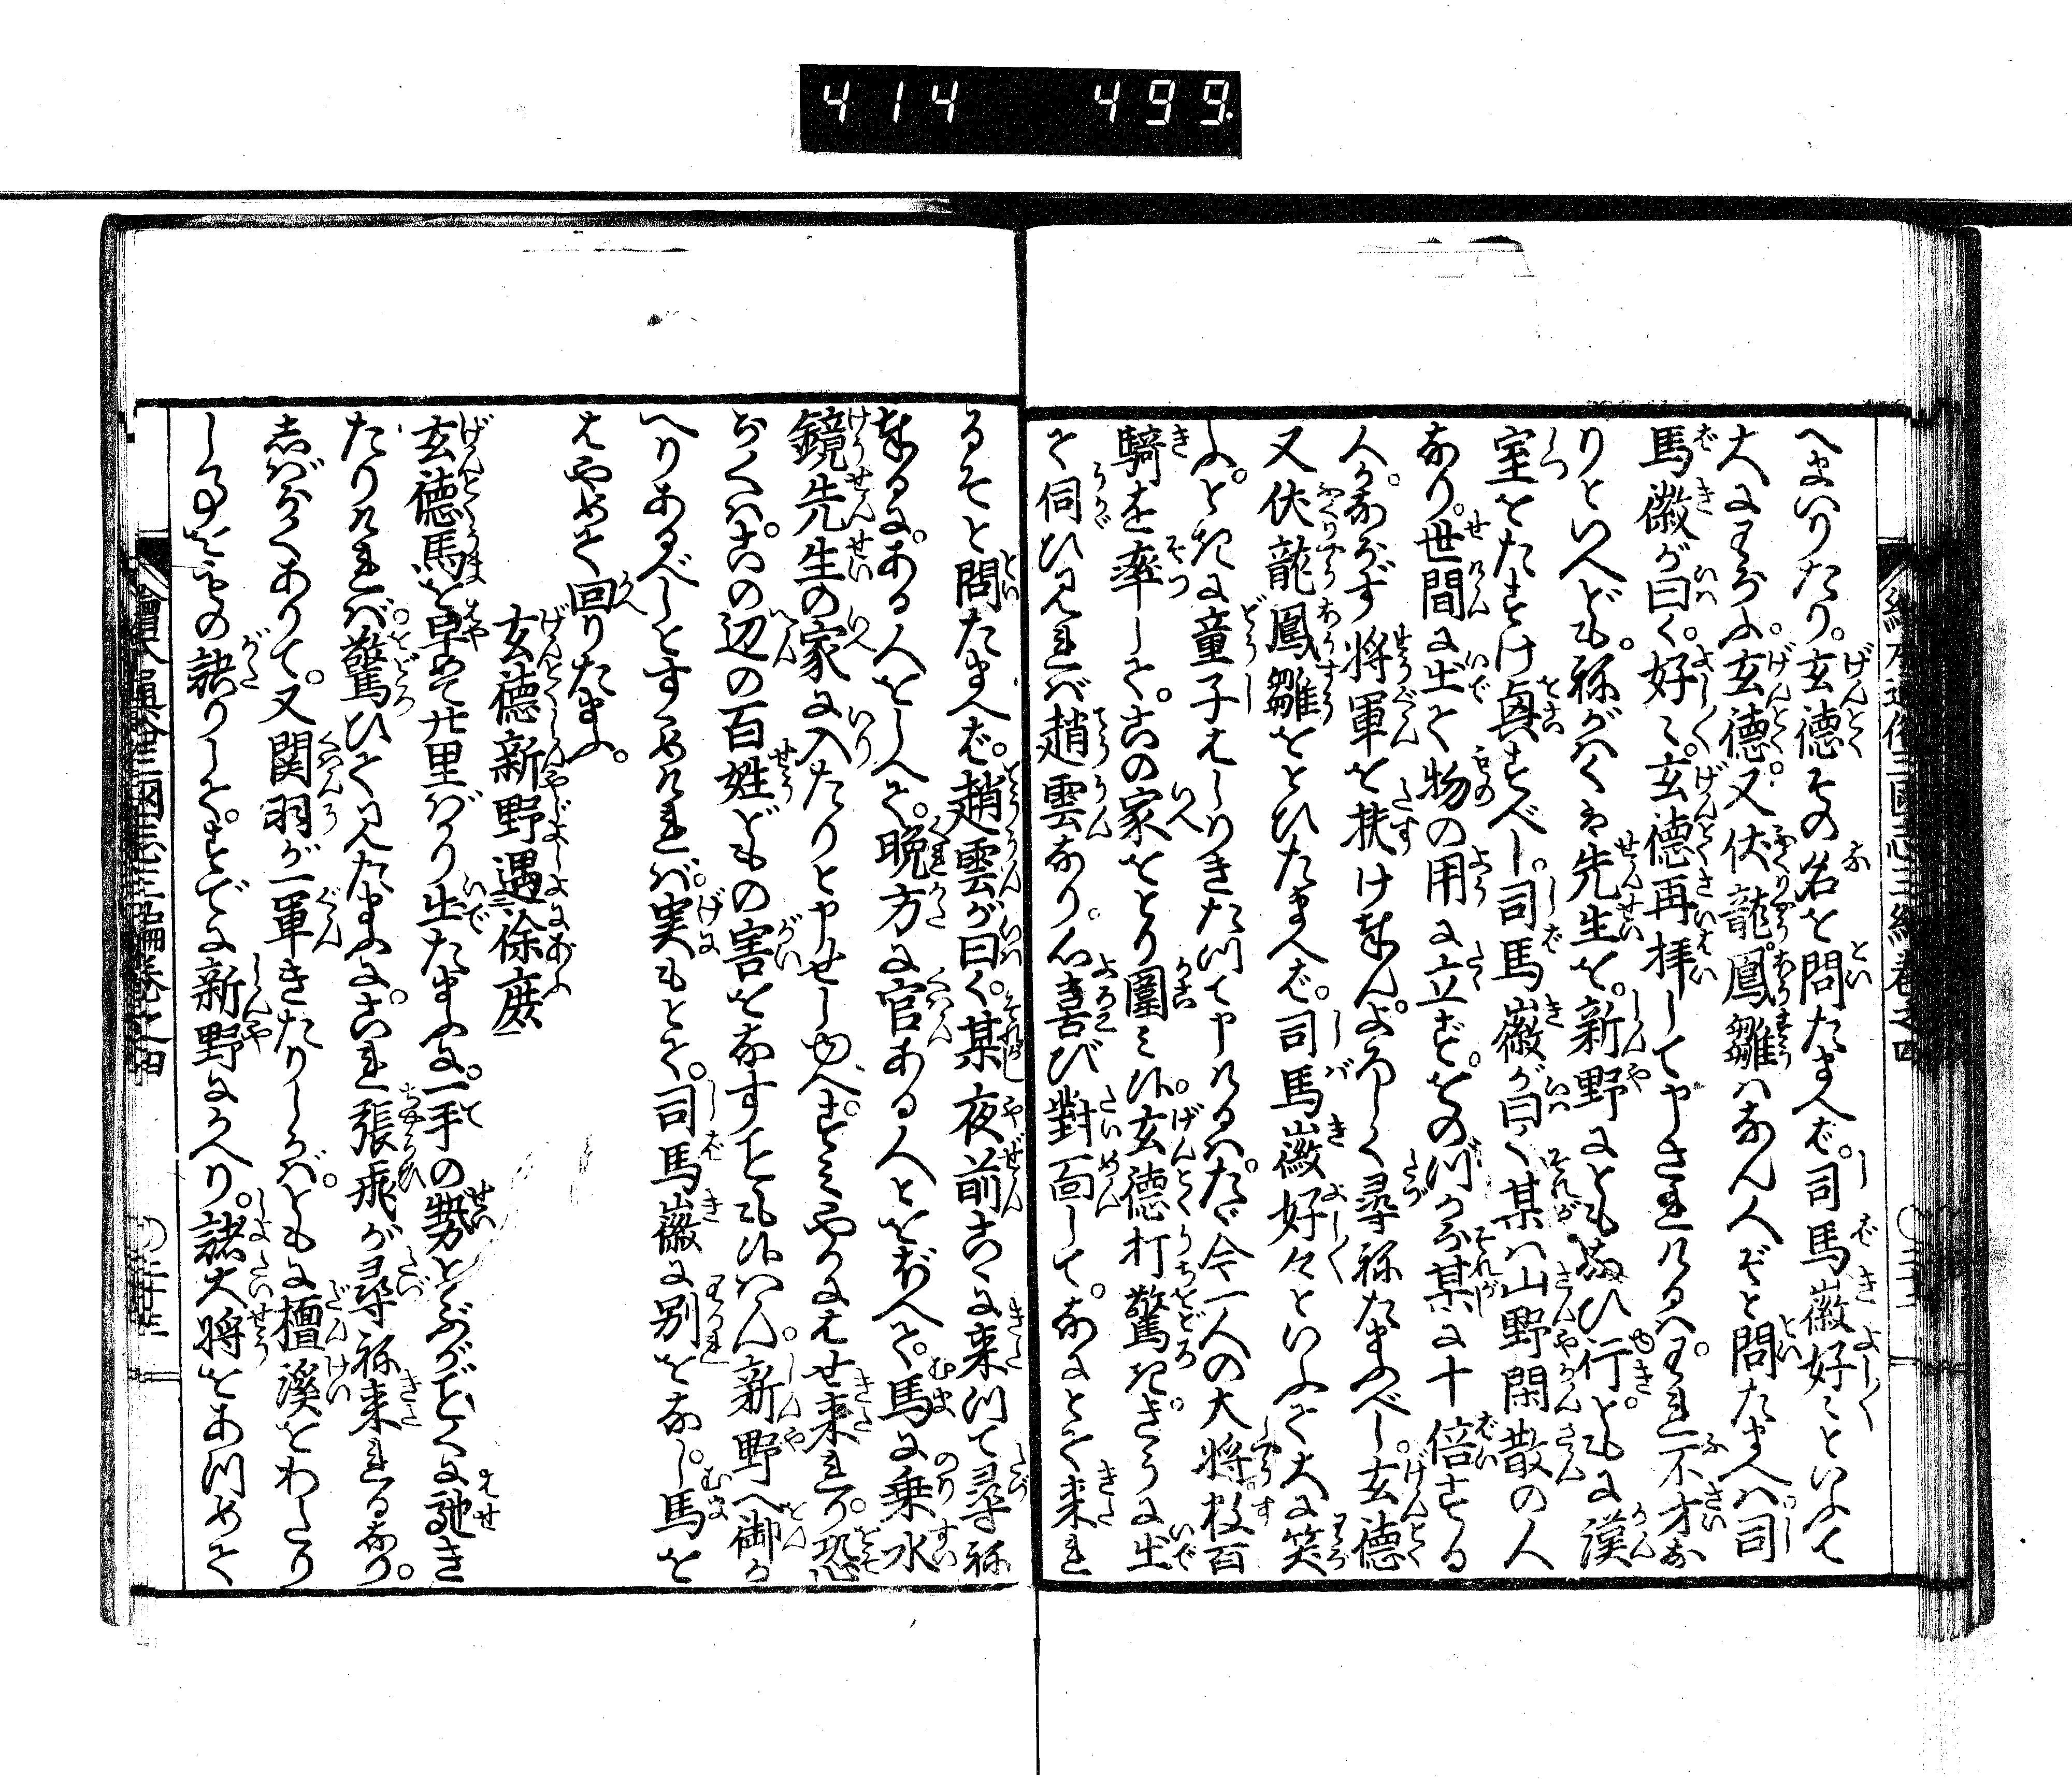 414 499
へまいりたり。玄徳その名を問たまへば。司馬徽好々といふて
大にわらふ。玄徳。又伏龍。鳳雛はなん人ぞと問たまへば。司
馬徽が曰く。好々。玄徳再拝して申されけるは。われ不才な
りといへども。ねがはくは先生を。新野にともなひ行。ともに漢
室をたすけ興すべし。司馬徽が曰く某は山野閑散の人
なり。世間に出て物の用に立ず。そのうへ某に十倍する
人。かならず将軍を扶け奉らん。よろしく尋ねたまふべし。玄徳
又伏龍鳳雛をとひたまへば。司馬徽好々といふて大に笑
ふ。ときに童子はしりきたつて申けるは。たゞ今一人の大将。数百
騎を率して。この家をとり圍み候。玄徳打驚き。きうに出
て伺ひ見れば趙雲なり。心喜び對面して。なにとて来れ
るぞと問たまへば。趙雲が曰く。某夜前こゝに来つて尋ね
奉るに。ある人をしへて。晩方に官ある人とおぼへて。馬に乗水
鏡先生の家に入たりと申せしゆへ。すみやかにはせ来れり。恐
らくは。この辺の百姓どもの害をなすことも候はん。新野へ御か
へりあるべしとすゝめければ。実もとて。司馬徽に別をなし。馬を
はやめて回りたまふ。
玄徳新野遇徐庶
玄徳馬を早めて廿里ばかり出たまふに。一手の勢とぶがごとくに馳き
たりければ。驚ひて見たまふに。これ張飛が尋ね来れるなり。
しばらくありて。又関羽が一軍きたりしかば。ともに檀溪をわたり
し事どもの語りして。すでに新野にかへり。諸大将をあつめて